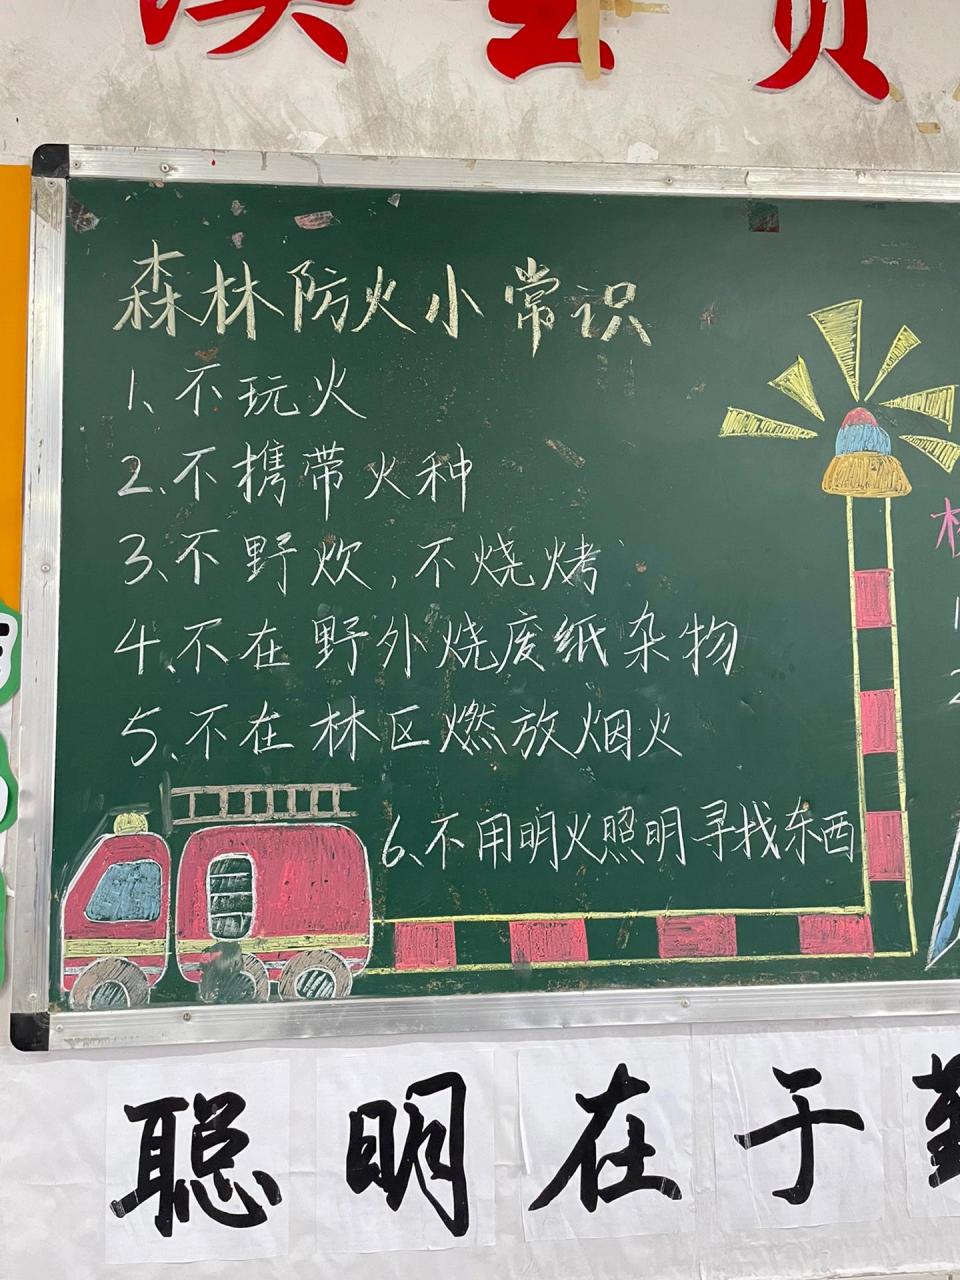 森林防火小常识
1、不玩火
2、不携带火种
3、不野炊，不烧烤
4、不在野外烧废纸杂物
5、不在林区燃放烟火
6、不用明火照明寻找东西
1
2
聪明在于勤